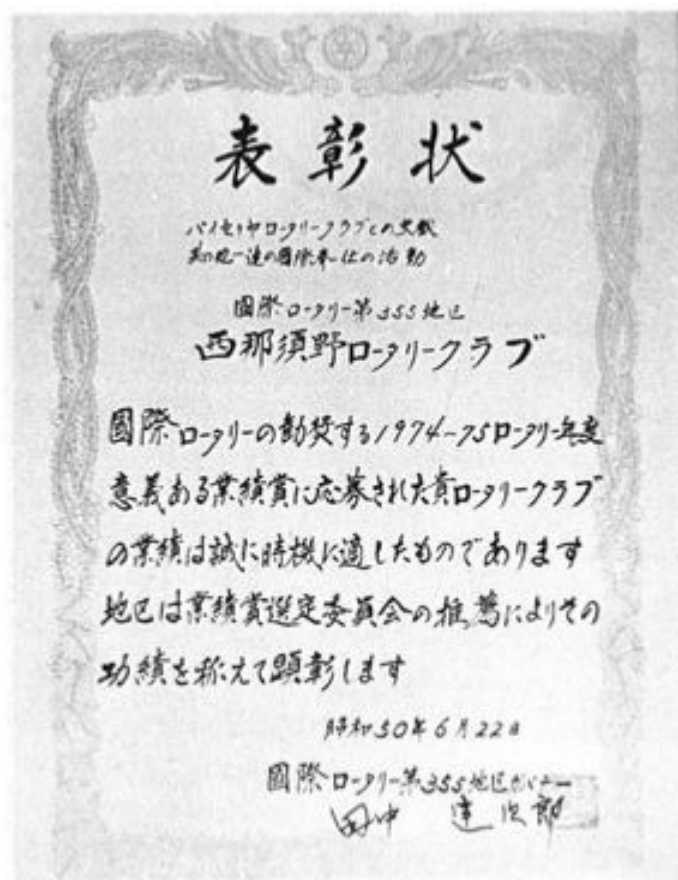 表彰状
バイセリヤロータリークラブとの文献
其の他一連の國際奉仕の活動
國際ロータリー第355地区
西那須野ロータリークラブ
國際ロータリーの勧奨する1974~75ロータリー年度
意義ある業績賞に応募された貴ロータリークラブ
の業績は誠に時機に適したものであります
地区は業績賞選定委員会の推薦によりその
功績を称えて顕彰します
昭和50年6月22日
國際ロータリー第355地区ガバナー
田中 達次郎